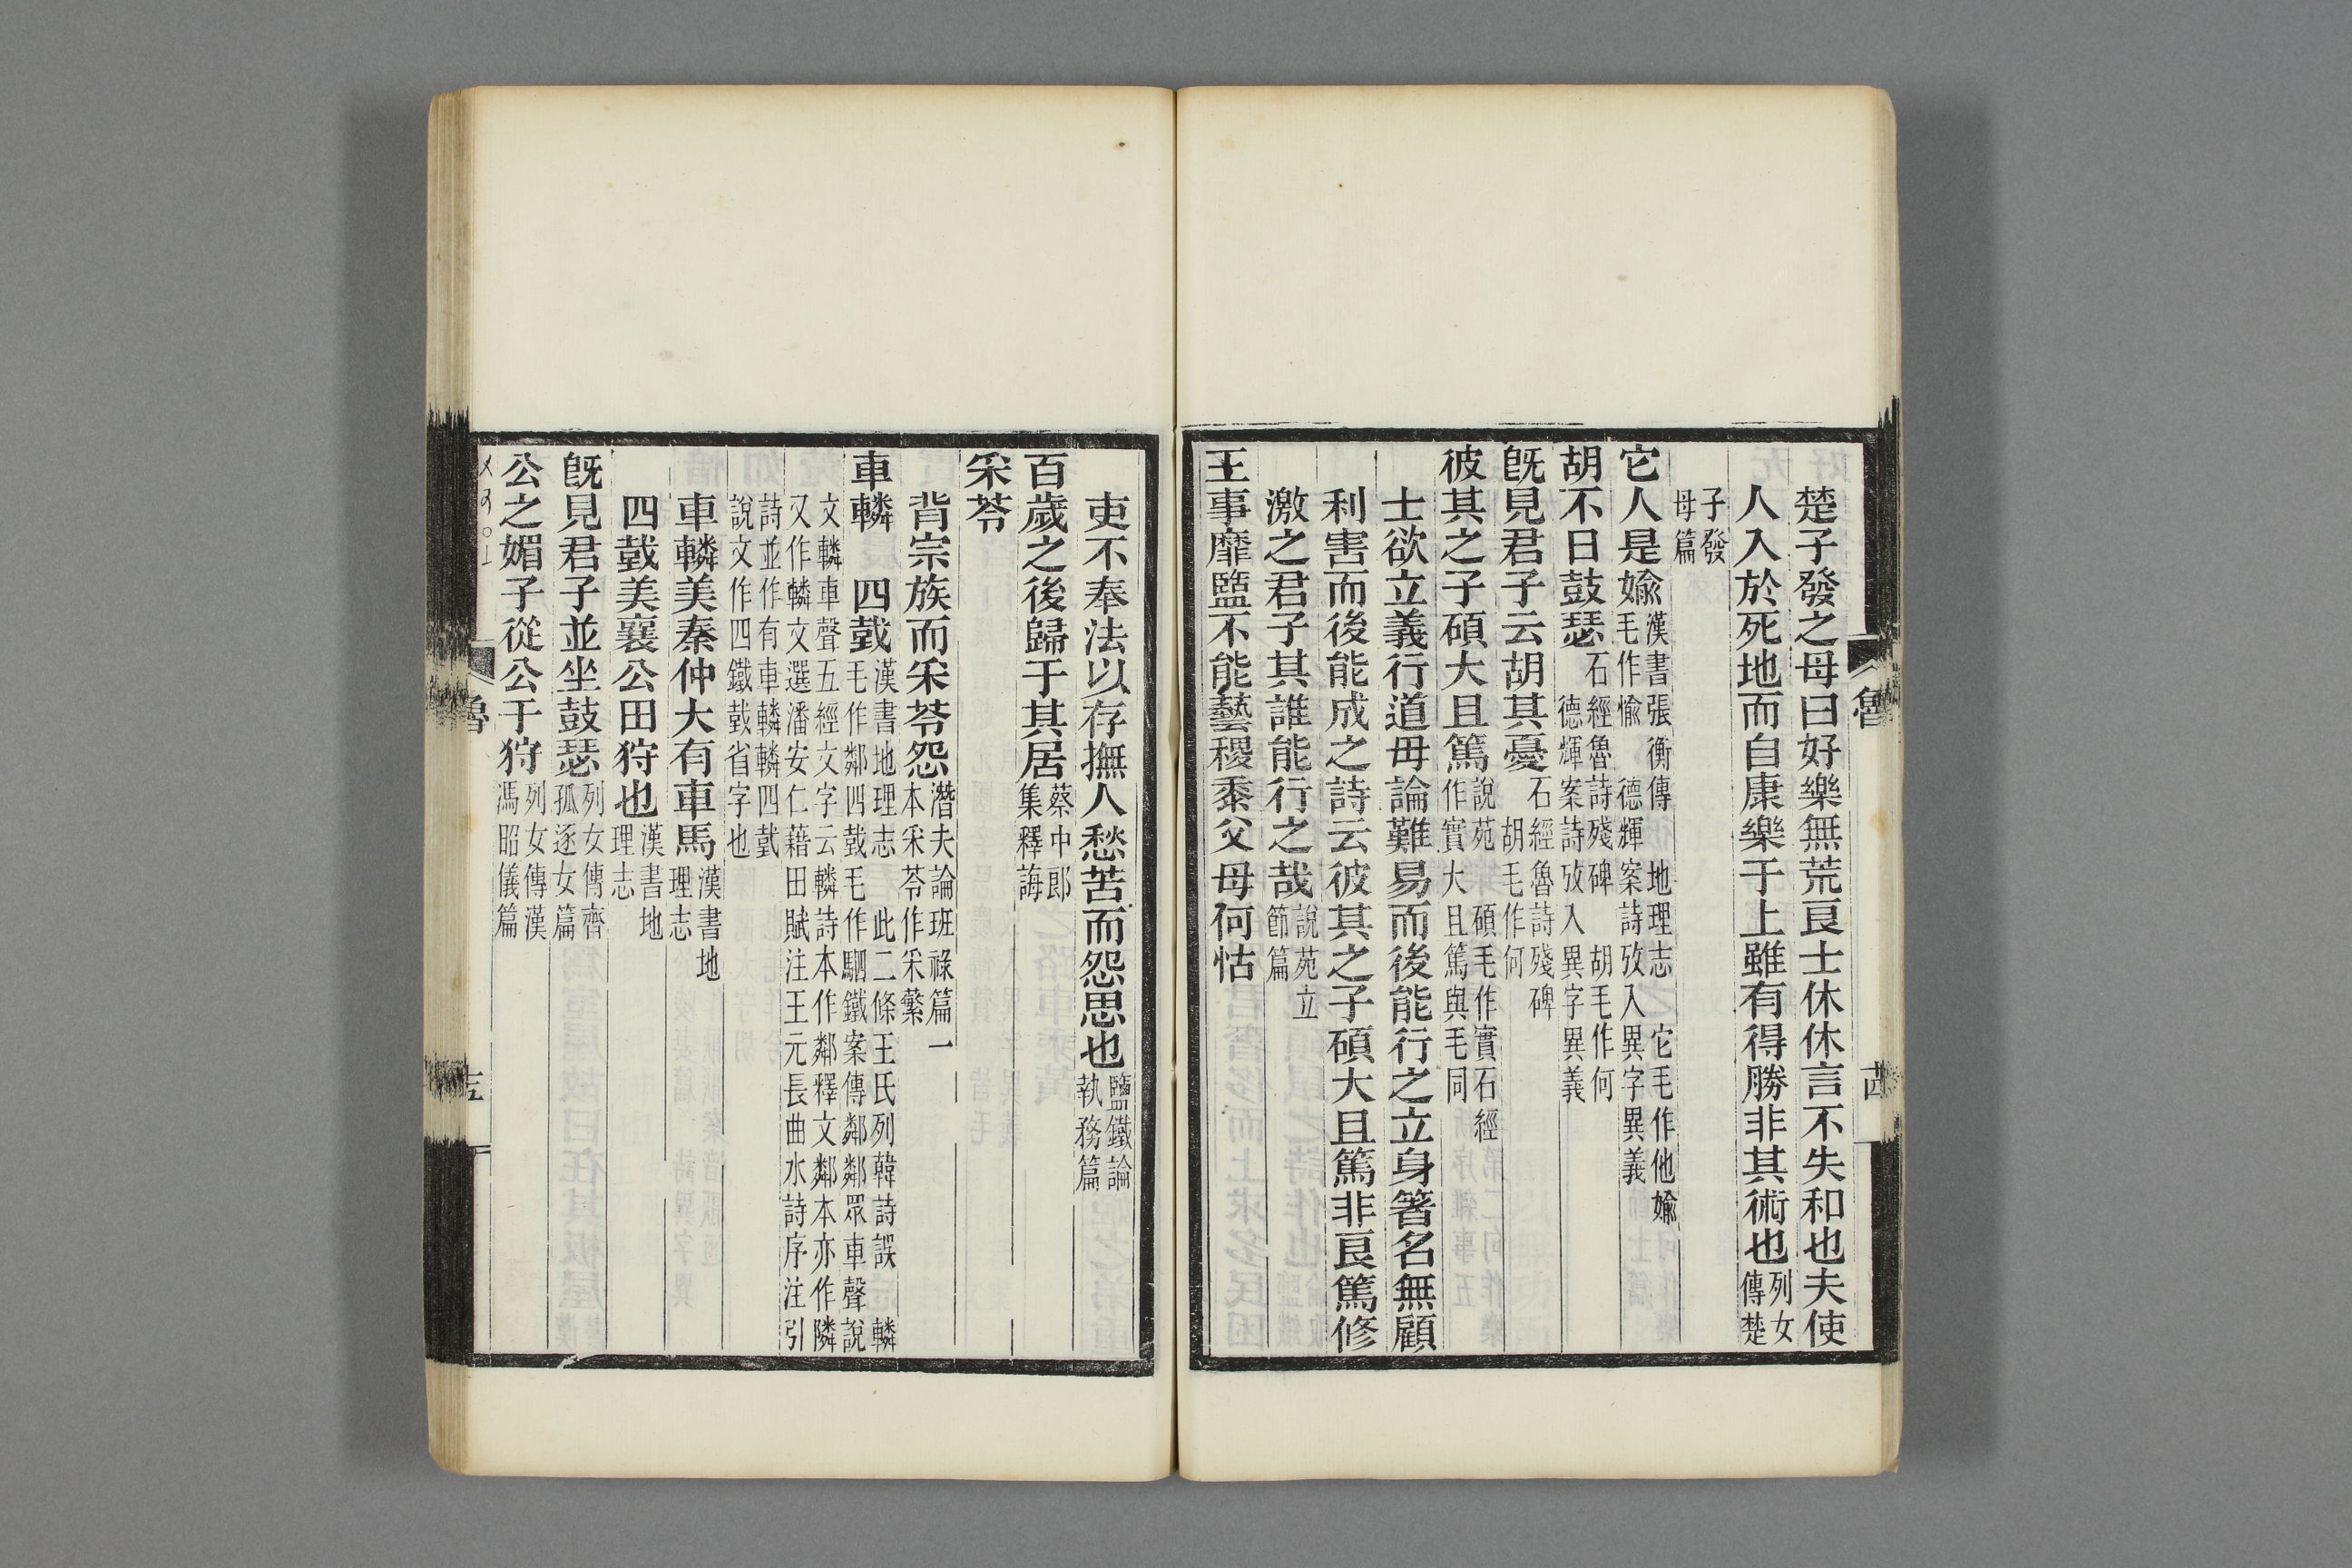 楚子發之母曰好樂無荒良士休休言不失和也夫使
人入於死地而自康樂于上雖有得勝非其術也列女傳楚
子發母篇
它人是婾漢書張衡傳 地理志 它毛作他婾毛作愉 德輝案詩攷入異字異義
胡不日鼓瑟石經魯詩殘碑 胡毛作何 德輝案詩攷入異字異義
旣見君子云胡其憂石經魯詩殘碑 胡毛作何
彼其之子碩大且篤說苑 碩毛作實石經作實大且篤與毛同
士欲立義行道毋論難易而後能行之立身箸名無顧
利害而後能成之詩云彼其之子碩大且篤非良篤修
激之君子其誰能行之哉說苑立節篇
王事靡盬不能藝稷黍父母何怙
魯
吏不奉法以存撫人愁苦而怨思也鹽鐵論執務篇
百歲之後歸于其居蔡中郎集釋誨
采苓
背宗族而采苓怨潛夫論班祿篇一本采苓作采蘩
車轔 四戜漢書地理志 此二條王氏列韓詩誤 轔毛作鄰四戜毛作駟鐵案傳鄰鄰眾車聲說
文轔車聲五經文字云轔詩本作鄰釋文鄰本亦作隣又作轔文選潘安仁藉田賦注王元長曲水詩序注引
詩並作有車轔轔四戜說文作四鐵戜省字也
車轔美秦仲大有車馬漢書地理志
四戜美襄公田狩也漢書地理志
旣見君子並坐鼓瑟列女傳齊孤逐女篇
公之媚子從公于狩列女傳漢馮昭儀篇
魯